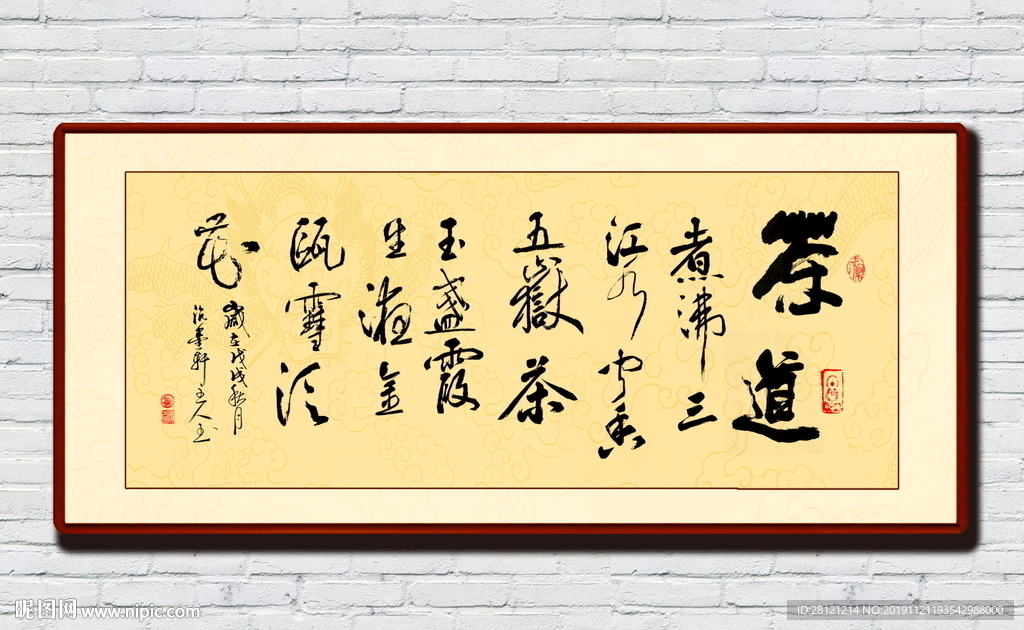 茶道
煮沸三
江水闻香
五嶽茶
玉盏霞
生液金
瓯雪泛
花
歲在戊戌秋月
墨轩主人书
昵图网 www.nipic.com
ID:28121214 NO:20191121193542988000